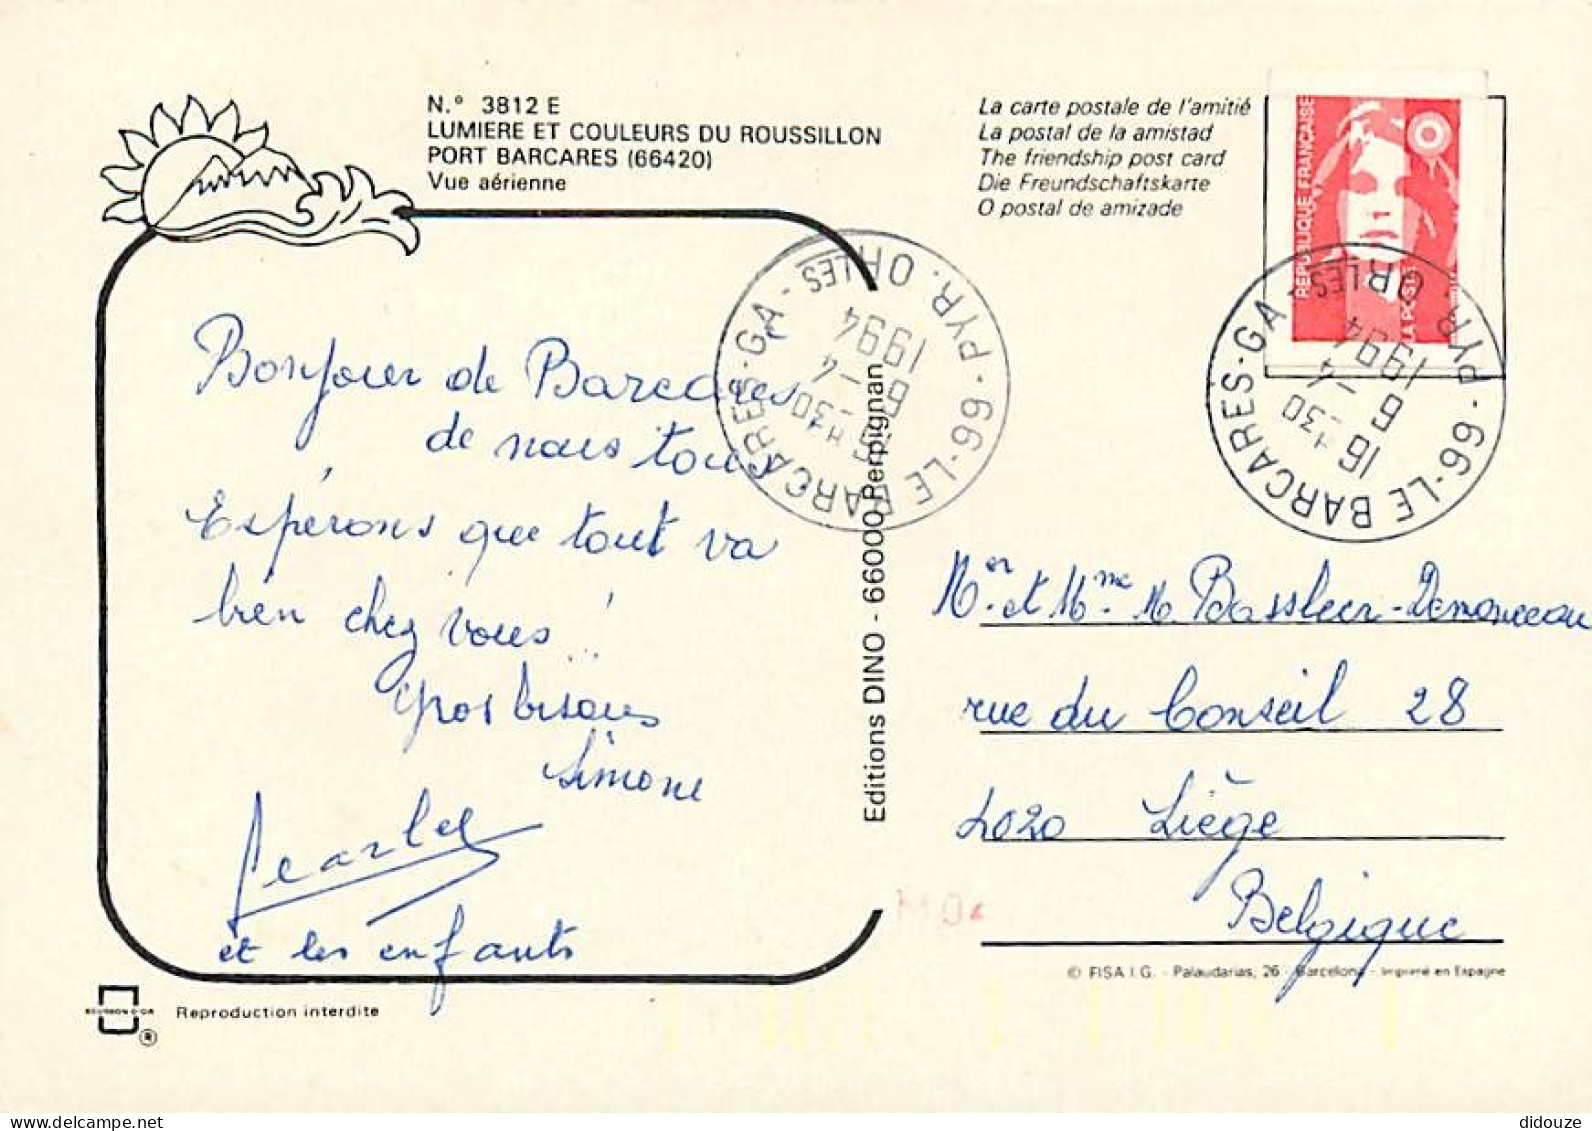 N.º 3812 E
LUMIERE ET COULEURS DU ROUSSILLON
PORT BARCARES (66420)
Vue aérienne
La carte postale de l'amitié
La postal de la amistad
The friendship post card
Die Freundschaftskarte
O postal de amizade
REPUBLIQUE FRANÇAISE
LA POSTE
66-LE BARCARES-GA- PYR. ORLES
16 H 30
6 -4
1994
66-LE BARCARES-GA- PYR. ORLES
16 H 30
6 -4
1994
Bonjour de Barcarès
de nous tous
Espérons que tout va
bien chez vous!
Gros bisous
Simone
et les enfants
Editions DINO - 66000 Perpignan
Mr. et Mme. M. Bassleer-Demonceau
rue du Conseil 28
4020 Liège
Belgique
© FISA I.G. - Palaudarias, 26 - Barcelona - Imprimé en Espagne
ESCUDO D'OR
®
Reproduction interdite
delcampe.net
didouze